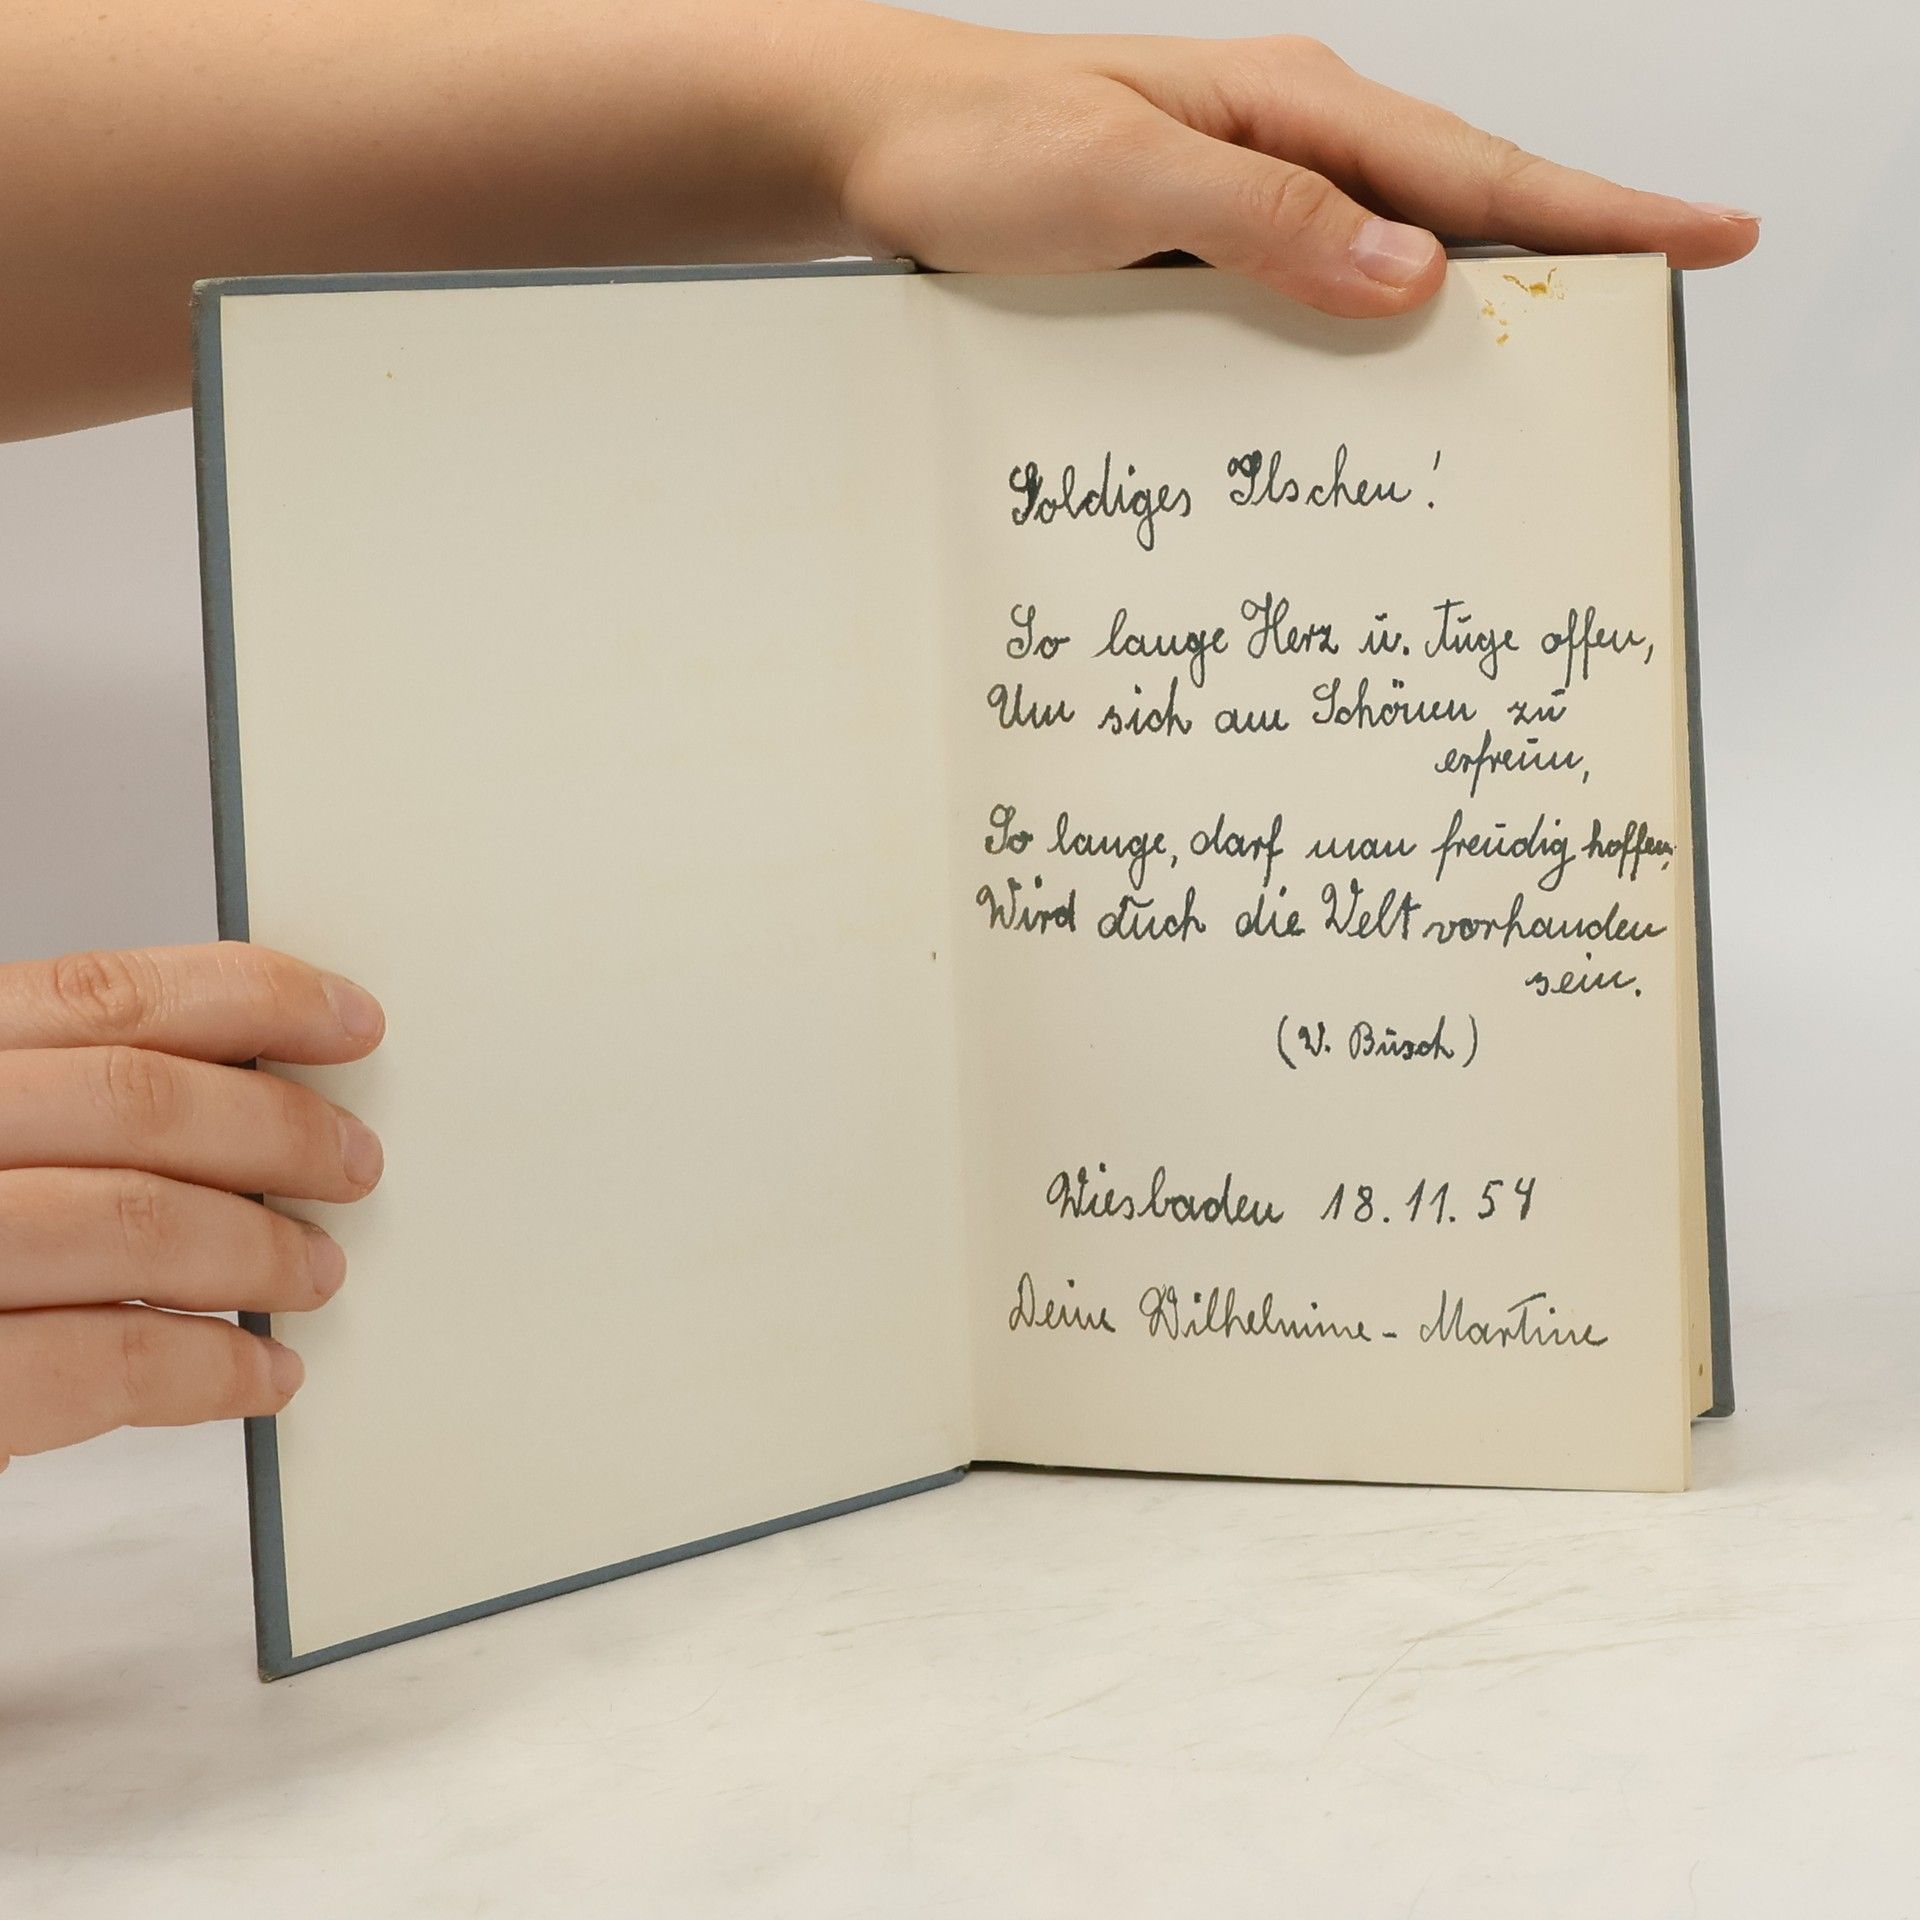 Goldiges Ilschen!
So lange Herz u. Auge offen,
Um sich am Schönen zu
erfreun,
So lange, darf man freudig hoffen,
Wird auch die Welt vorhanden
sein.
(W. Busch)
Wiesbaden 18.11.54
Deine Wilhelmine - Martine